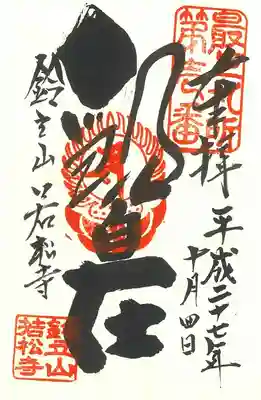 最上札所
第壱番
奉拝
平成二十七年
十月四日
観自在
鈴立山 若松寺
鈴立山
若松寺